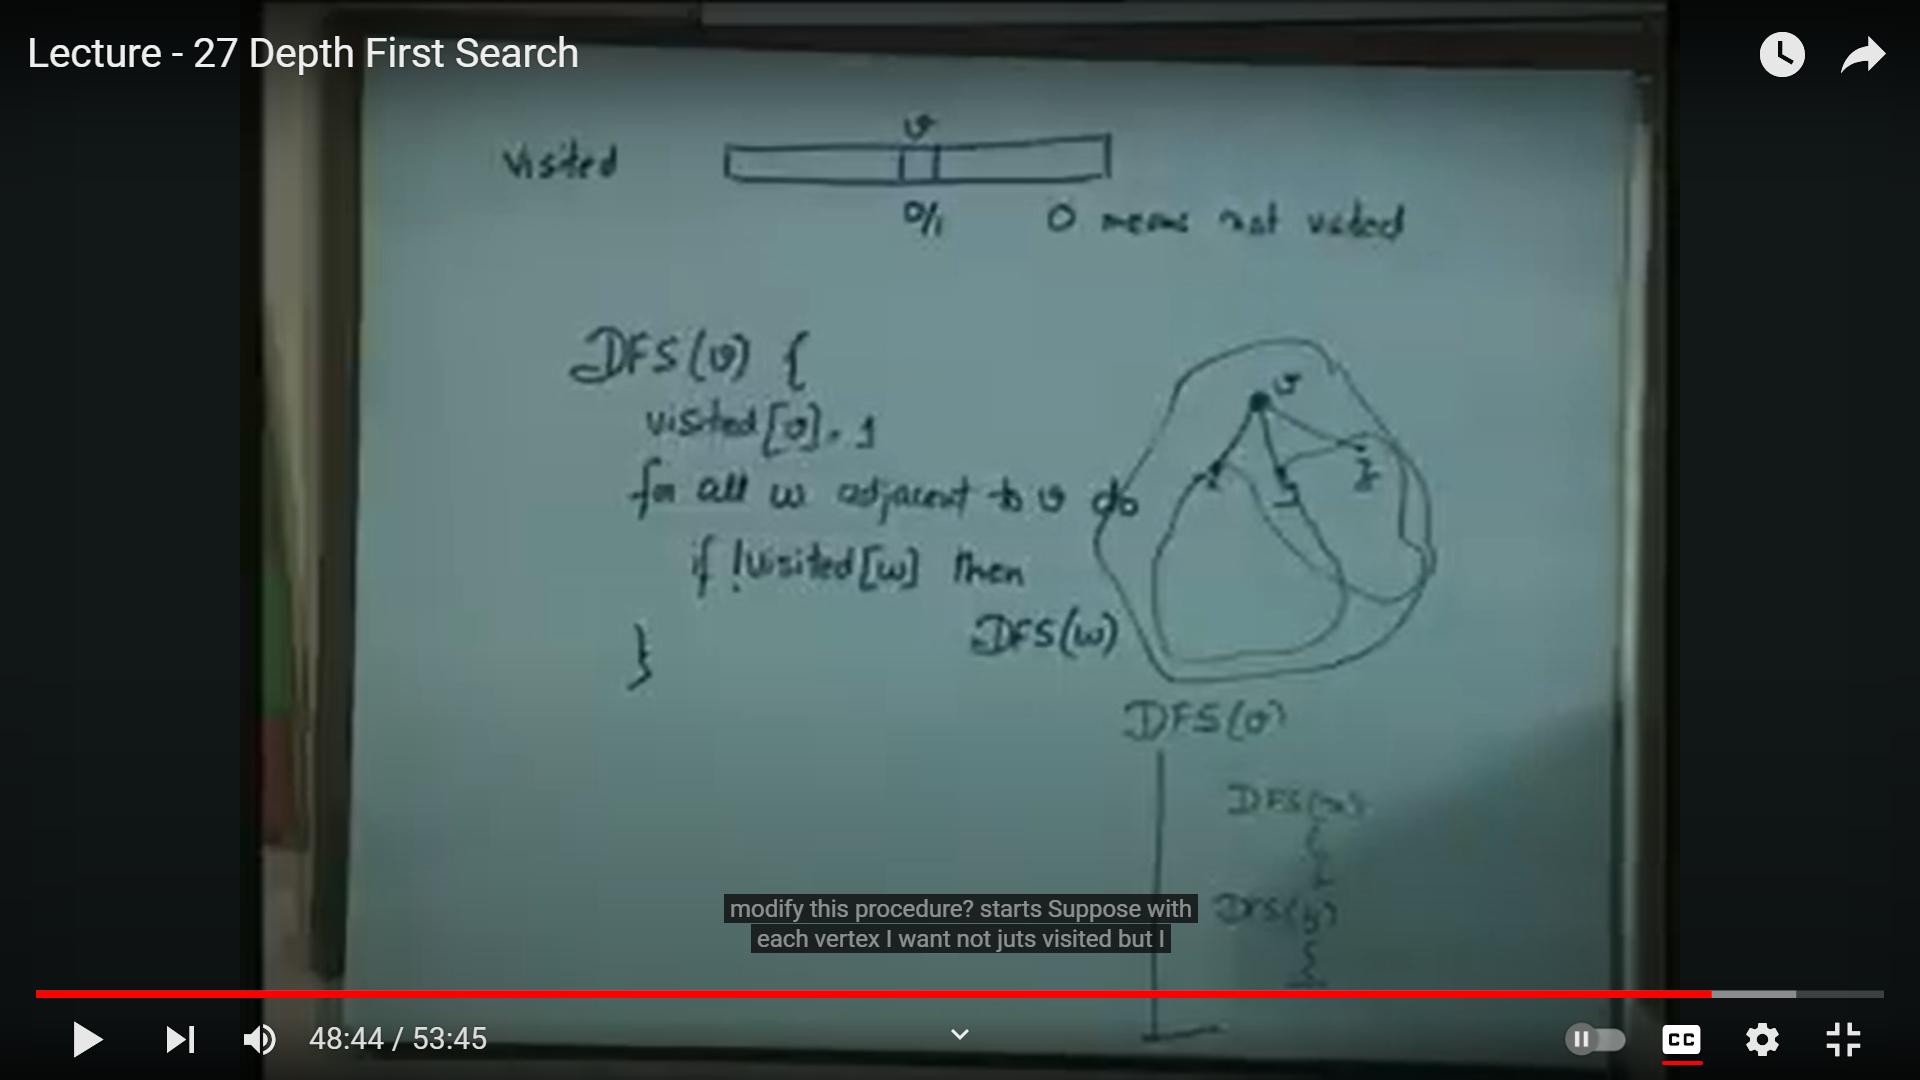 Lecture - 27 Depth First Search
v
Visited
0/1 0 means not visited
DFS(v) {
visited[v] = 1
for all w adjacent to v do
if !visited[w] then
DFS(w)
}
v
x y z
DFS(v)
DFS(x)
DFS(y)
modify this procedure? starts Suppose with
each vertex I want not juts visited but I
48:44 / 53:45
CC